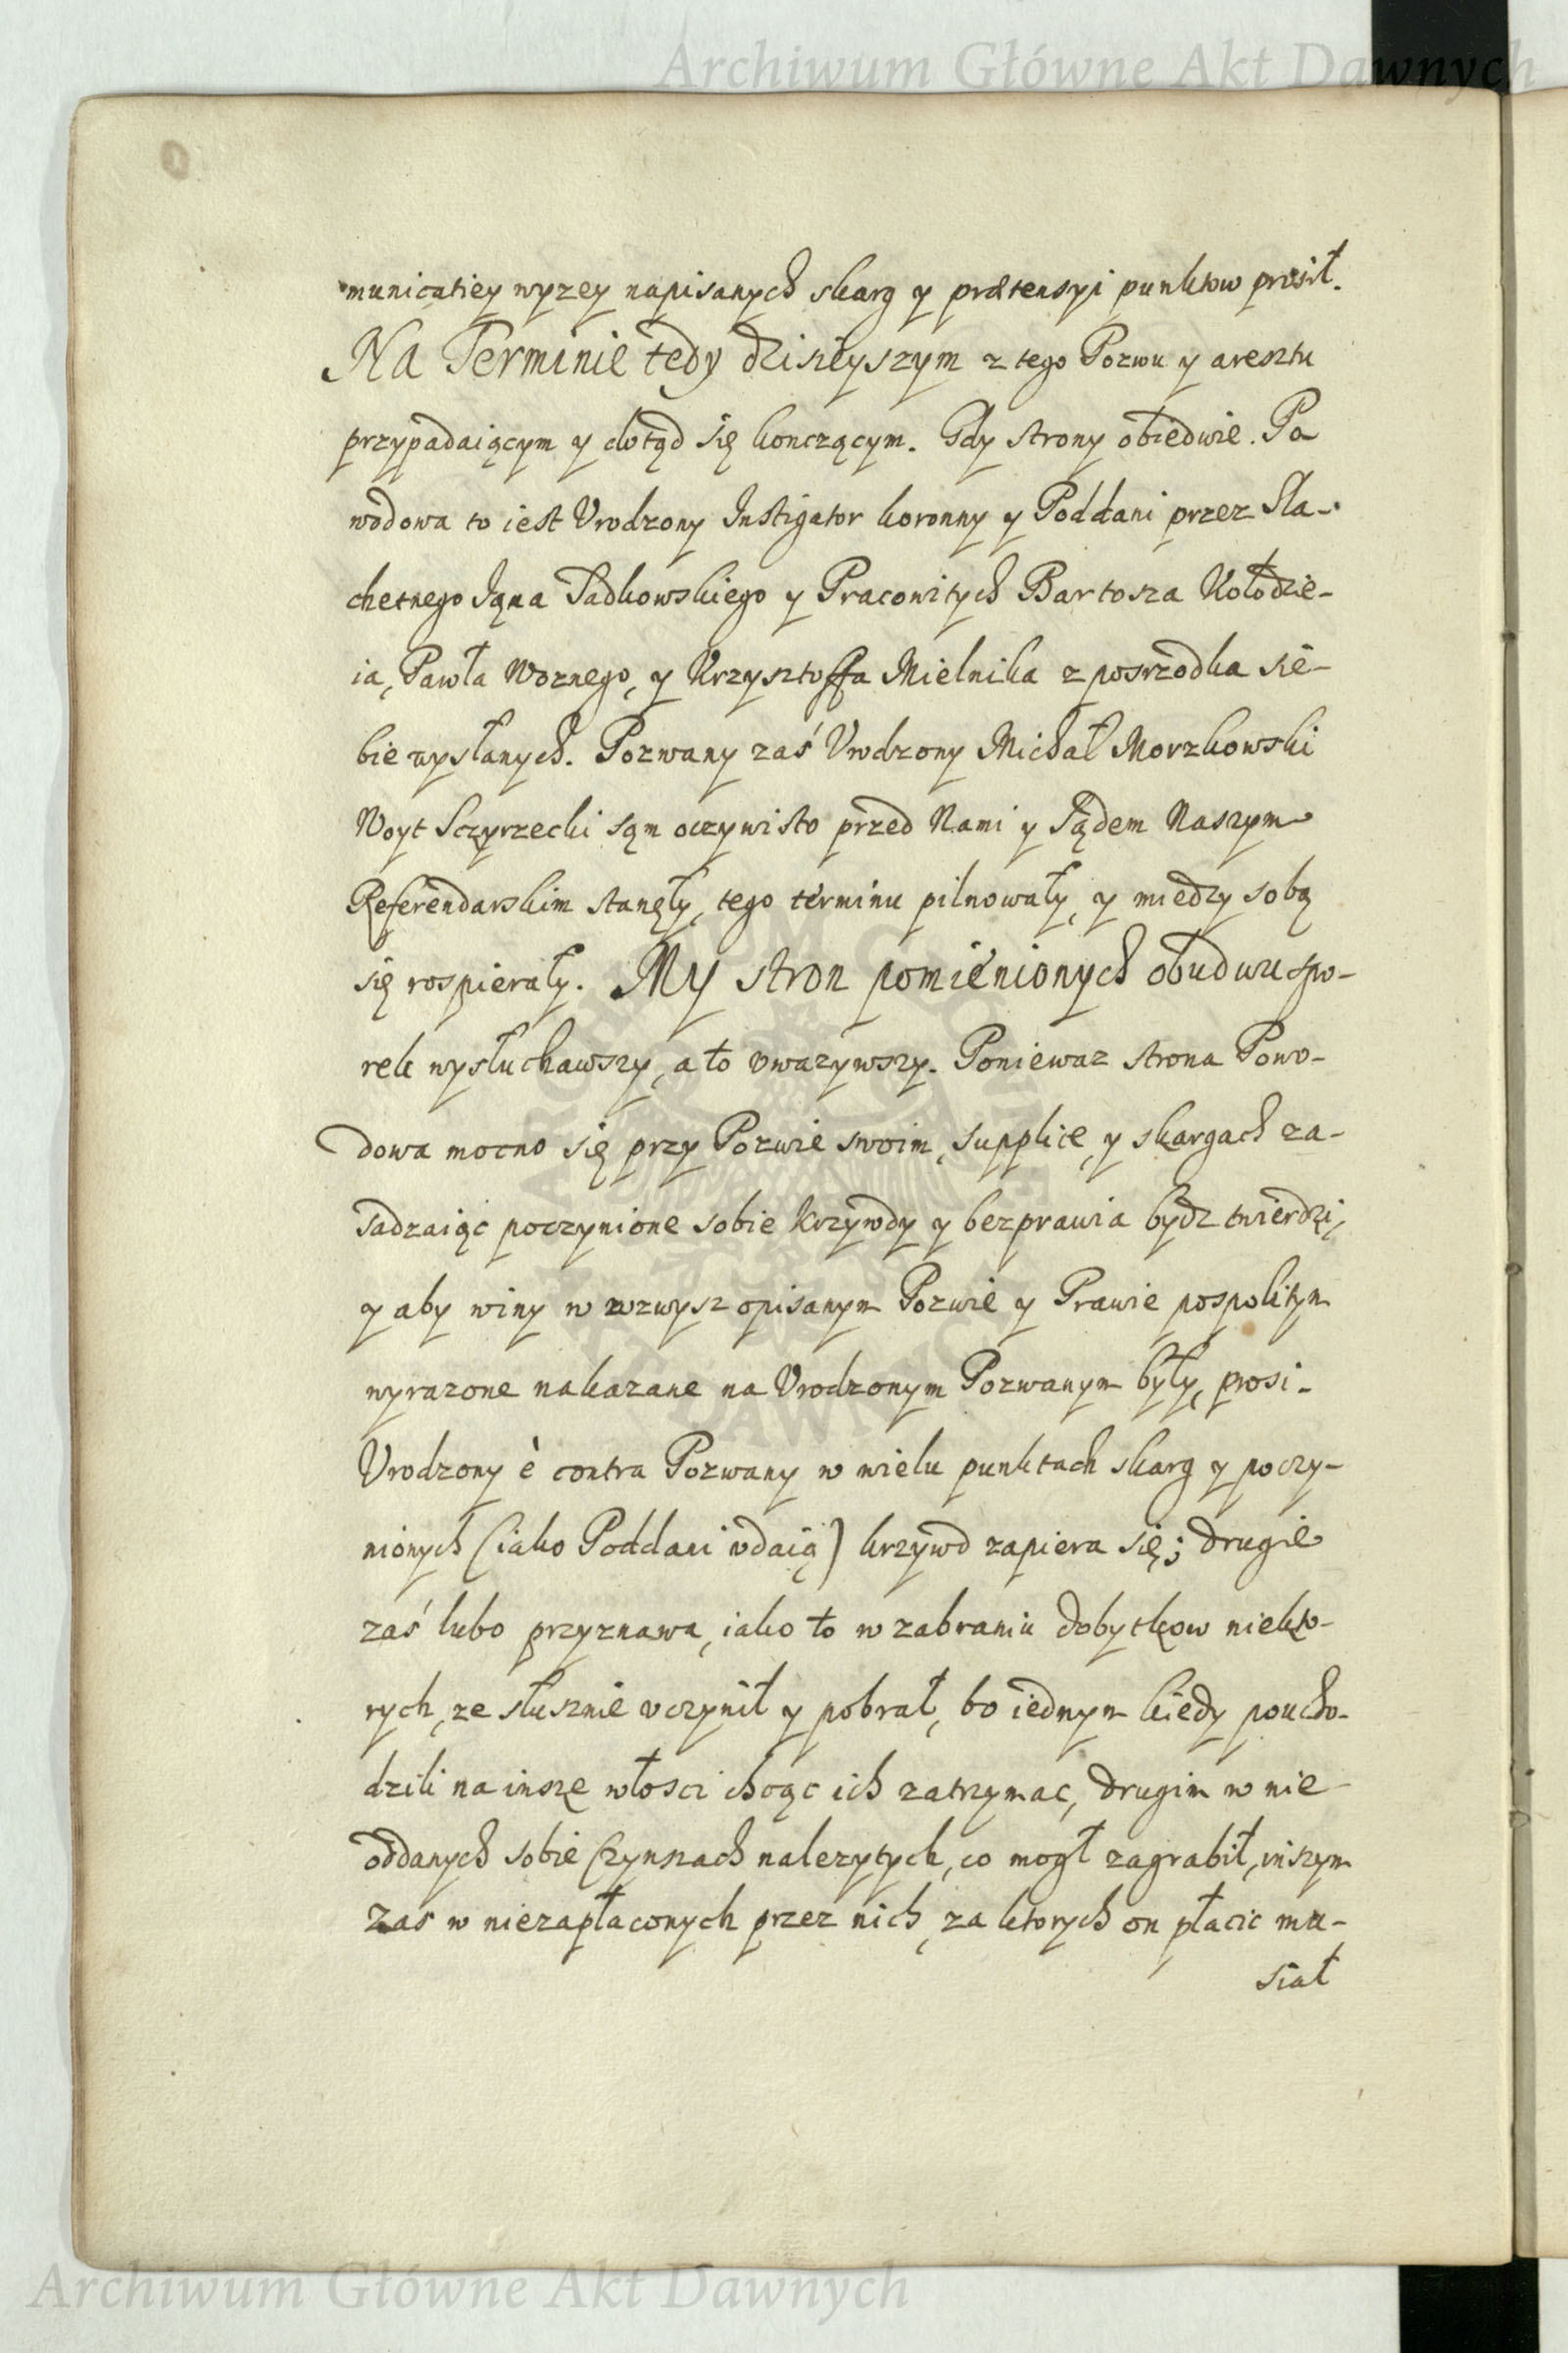 Archiwum Główne Akt Dawnych
municatiey wyzey napisanych skarg y prætensyi punktow prosił.
Na Terminie tedy dzisieyszym z tego Pozwu y aresztu
przypadaiącym y dotąd się konczącym. Gdy strony obiedwie. Po
wodowa to iest Vrodzony Instigator koronny y Poddani przez Sla-
chetnego Jana Sadkowskiego y Pracowitych Bartosza Kołodzie-
ia, Pawła Woznego, y Krzysztoffa Mielnika z posrzodka sie-
bie wysłanych. Pozwany zaś Vrodzony Michał Morzkowski
Woyt Sczyrzecki sąm oczywisto przed Nami y Sądem Naszym
Referendarskim stanęły, tego terminu pilnowały, y miedzy sobą
się rospierały. My stron pomienionych obudwu spo-
rek wysłuchawszy, a to vwazywszy. Poniewaz strona Powo-
dowa mocno się przy Pozwie swoim, supplice, y skargach za-
sadzaiąc poczynione sobie krzywdy y bezprawia bydz twierdzi,
y aby winy w wzwysz opisanym Pozwie y Prawie pospolitym
wyrazone nakazane na Vrodzonym Pozwanym były, prosi.
Vrodzony è contra Pozwany w wielu punktach skarg y poczy-
nionych (iako Poddani vdaią) krzywd zapiera się; drugie
zaś lubo przyznawa, iako to w zabraniu dobytkow niekto-
rych, ze słusznie vczynił y pobrał, bo iednym kiedy poucho-
dzili na insze włosci chcąc ich zatrzymac, drugim w nie-
oddanych sobie Czynszach nalezytych, co mogł zagrabił, inszym
zas w niezapłaconych przez nich, za ktorych on płacic mu-
siał
Archiwum Główne Akt Dawnych